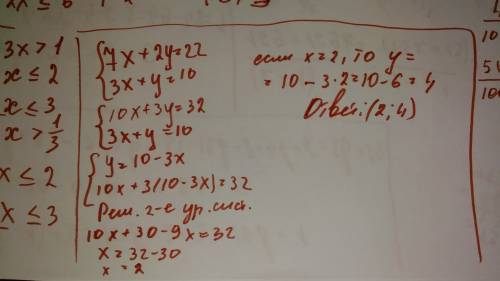 3x > 1
x ≤ 2
x ≤ 3
x > 1/3
x ≤ 2
x ≤ 3
{ 7x + 2y = 22
3x + y = 10
{ 10x + 3y = 32
3x + y = 10
{ y = 10 - 3x
10x + 3(10 - 3x) = 32
Реш. 2-е ур. сист.
10x + 30 - 9x = 32
x = 32 - 30
x = 2
если x = 2, то y =
= 10 - 3·2 = 10 - 6 = 4
Ответ: (2; 4)